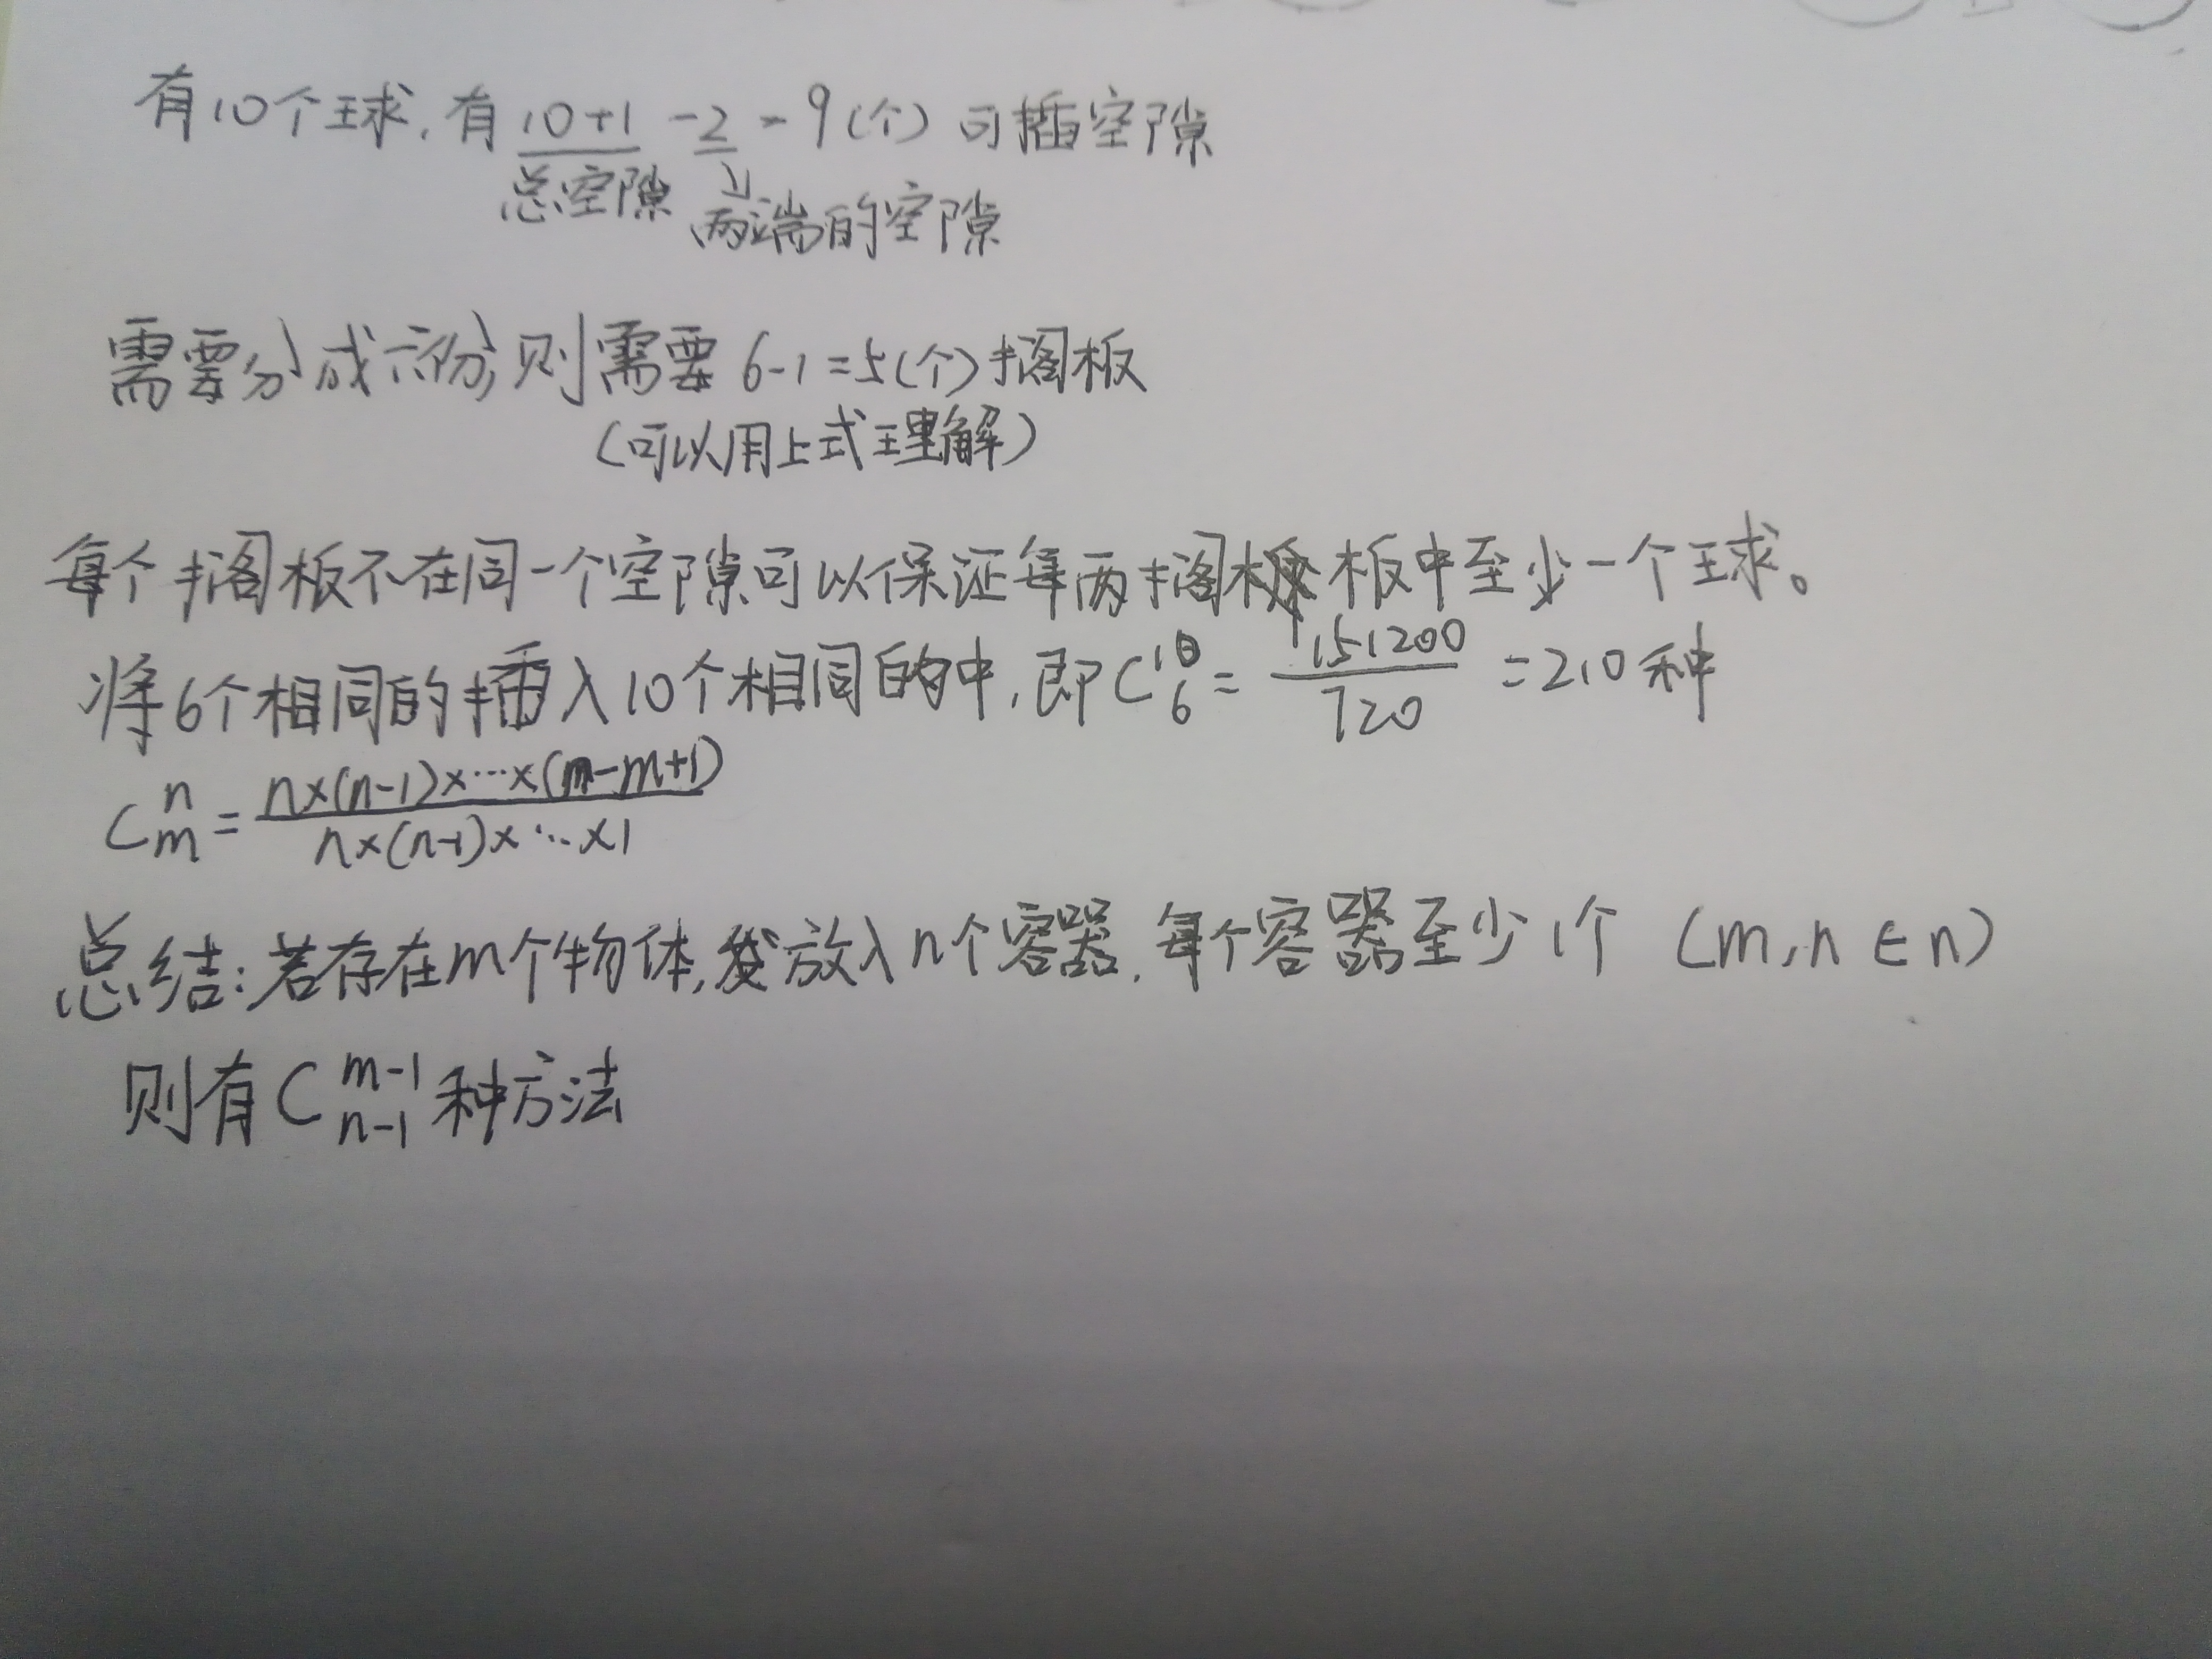 有10个球,有10+1-2=9(个)可插空隙
总空隙 两端的空隙
需要分成六份,则需要6-1=5(个)搁板
(可以用上式理解)
每个搁板不在同一个空隙可以保证每两搁板中至少一个球。
将6个相同的插入10个相同的中,即C¹⁰₆=151200/720=210种
Cⁿₘ=n×(n-1)×…×(n-m+1)/n×(n-1)×…×1
总结:若存在m个物体,放入n个容器,每个容器至少1个(m,n∈n)
则有C^{m-1}_{n-1}种方法